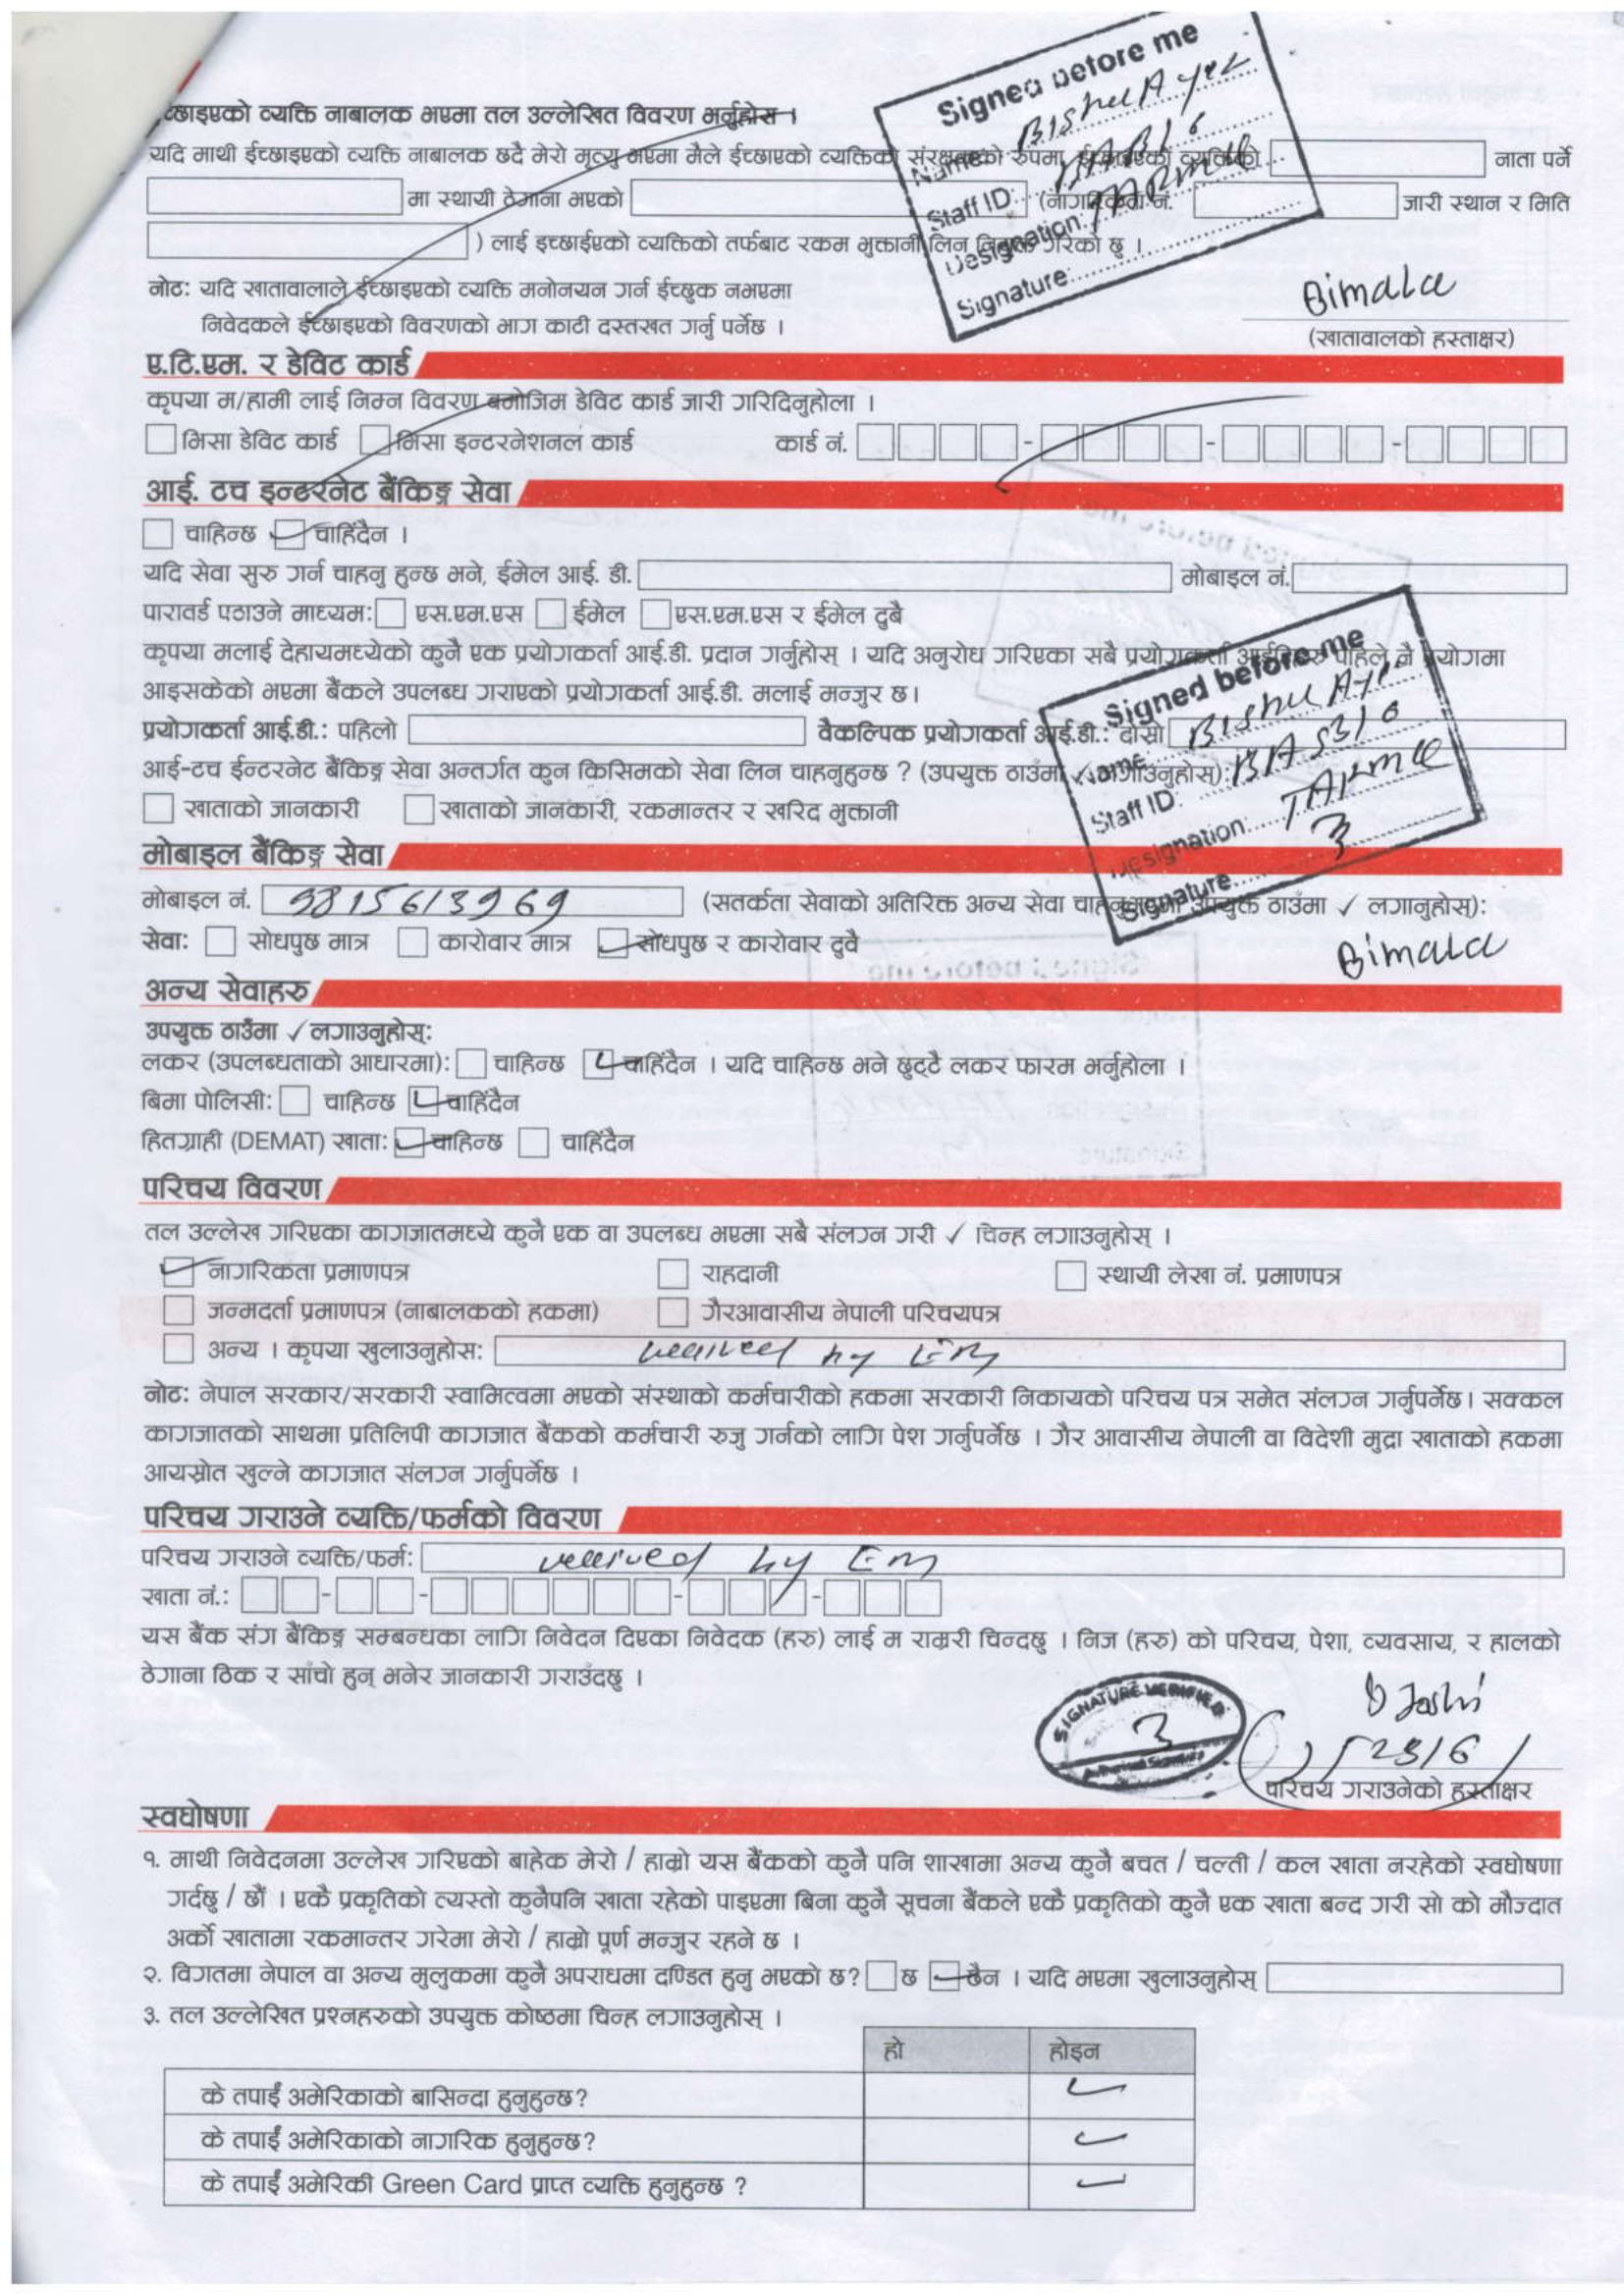 च्छाइएको व्यक्ति नाबालक भएमा तल उल्लेखित विवरण भर्नुहोस ।
यदि माथी ईच्छाइएको व्यक्ति नाबालक छदै मेरो मृत्यु भएमा मैले ईच्छाएको व्यक्तिको संरक्षकको रुपमा, ईच्छाइएको व्यक्तिको नाता पर्ने
मा स्थायी ठेगाना भएको (नागरिकता नं. जारी स्थान र मिति
) लाई इच्छाईएको व्यक्तिको तर्फबाट रकम भुक्तानी लिन नियुक्त गरेको छु ।
Signed before me
Name:
Staff ID:
Designation:
Signature:
नोट: यदि खातावालाले ईच्छाइएको व्यक्ति मनोनयन गर्न ईच्छुक नभएमा
निवेदकले ईच्छाइएको विवरणको भाग काटी दस्तखत गर्नु पर्नेछ ।
Bimala
(खातावालको हस्ताक्षर)
ए.टि.एम. र डेविट कार्ड
कृपया म/हामी लाई निम्न विवरण बमोजिम डेविट कार्ड जारी गरिदिनुहोला ।
भिसा डेविट कार्ड भिसा इन्टरनेशनल कार्ड कार्ड नं. - - -
आई. टच इन्टरनेट बैंकिङ्ग सेवा
चाहिन्छ चाहिंदैन ।
यदि सेवा सुरु गर्न चाहनु हुन्छ भने, ईमेल आई. डी. मोबाइल नं.
पारावर्ड पठाउने माध्यम: एस.एम.एस ईमेल एस.एम.एस र ईमेल दुबै
कृपया मलाई देहायमध्येको कुनै एक प्रयोगकर्ता आई.डी. प्रदान गर्नुहोस् । यदि अनुरोध गरिएका सबै प्रयोगकर्ता पहिले नै प्रयोगमा
आइसकेको भएमा बैंकले उपलब्ध गराएको प्रयोगकर्ता आई.डी. मलाई मन्जुर छ।
प्रयोगकर्ता आई.डी.: पहिलो वैकल्पिक प्रयोगकर्ता आई.डी.: दोस्रो
आई-टच ईन्टरनेट बैंकिङ्ग सेवा अन्तर्गत कुन किसिमको सेवा लिन चाहनुहुन्छ ? (उपयुक्त ठाउँमा ✓ लगाउनुहोस):
खाताको जानकारी खाताको जानकारी, रकमान्तर र खरिद भुक्तानी
Signed before me
Name:
Staff ID:
Designation:
Signature
मोबाइल बैंकिङ्ग सेवा
मोबाइल नं. 9815613969 (सतर्कता सेवाको अतिरिक्त अन्य सेवा चाहनुभएमा उपयुक्त ठाउँमा ✓ लगानुहोस्):
सेवा: सोधपुछ मात्र कारोवार मात्र सोधपुछ र कारोवार दुवै
Bimala
अन्य सेवाहरु
उपयुक्त ठाउँमा ✓ लगाउनुहोस्:
लकर (उपलब्धताको आधारमा): चाहिन्छ चाहिंदैन । यदि चाहिन्छ भने छुट्टै लकर फारम भर्नुहोला ।
बिमा पोलिसी: चाहिन्छ चाहिंदैन
हितग्राही (DEMAT) खाता: चाहिन्छ चाहिंदैन
परिचय विवरण
तल उल्लेख गरिएका कागजातमध्ये कुनै एक वा उपलब्ध भएमा सबै संलग्न गरी ✓ चिन्ह लगाउनुहोस् ।
नागरिकता प्रमाणपत्र राहदानी स्थायी लेखा नं. प्रमाणपत्र
जन्मदर्ता प्रमाणपत्र (नाबालकको हकमा) गैरआवासीय नेपाली परिचयपत्र
अन्य । कृपया खुलाउनुहोस: by
नोट: नेपाल सरकार/सरकारी स्वामित्वमा भएको संस्थाको कर्मचारीको हकमा सरकारी निकायको परिचय पत्र समेत संलग्न गर्नुपर्नेछ। सक्कल
कागजातको साथमा प्रतिलिपी कागजात बैंकको कर्मचारी रुजु गर्नको लागि पेश गर्नुपर्नेछ । गैर आवासीय नेपाली वा विदेशी मुद्रा खाताको हकमा
आयस्रोत खुल्ने कागजात संलग्न गर्नुपर्नेछ ।
परिचय गराउने व्यक्ति/फर्मको विवरण
परिचय गराउने व्यक्ति/फर्म: by
खाता नं.: - - - -
यस बैंक संग बैंकिङ्ग सम्बन्धका लागि निवेदन दिएका निवेदक (हरु) लाई म राम्ररी चिन्दछु । निज (हरु) को परिचय, पेशा, व्यवसाय, र हालको
ठेगाना ठिक र सांचो हुन् भनेर जानकारी गराउँदछु ।
SIGNATURE VERIFIED
Joshi
परिचय गराउनेको हस्ताक्षर
स्वघोषणा
१. माथी निवेदनमा उल्लेख गरिएको बाहेक मेरो / हाम्रो यस बैंकको कुनै पनि शाखामा अन्य कुनै बचत / चल्ती / कल खाता नरहेको स्वघोषणा
गर्दछु / छौं । एकै प्रकृतिको त्यस्तो कुनैपनि खाता रहेको पाइएमा बिना कुनै सूचना बैंकले एकै प्रकृतिको कुनै एक खाता बन्द गरी सो को मौज्दात
अर्को खातामा रकमान्तर गरेमा मेरो / हाम्रो पूर्ण मन्जुर रहने छ ।
२. विगतमा नेपाल वा अन्य मुलुकमा कुनै अपराधमा दण्डित हुनु भएको छ? छ छैन । यदि भएमा खुलाउनुहोस्
३. तल उल्लेखित प्रश्नहरुको उपयुक्त कोष्ठमा चिन्ह लगाउनुहोस् ।
हो होइन
के तपाईं अमेरिकाको बासिन्दा हुनुहुन्छ?
के तपाईं अमेरिकाको नागरिक हुनुहुन्छ?
के तपाईं अमेरिकी Green Card प्राप्त व्यक्ति हुनुहुन्छ ?